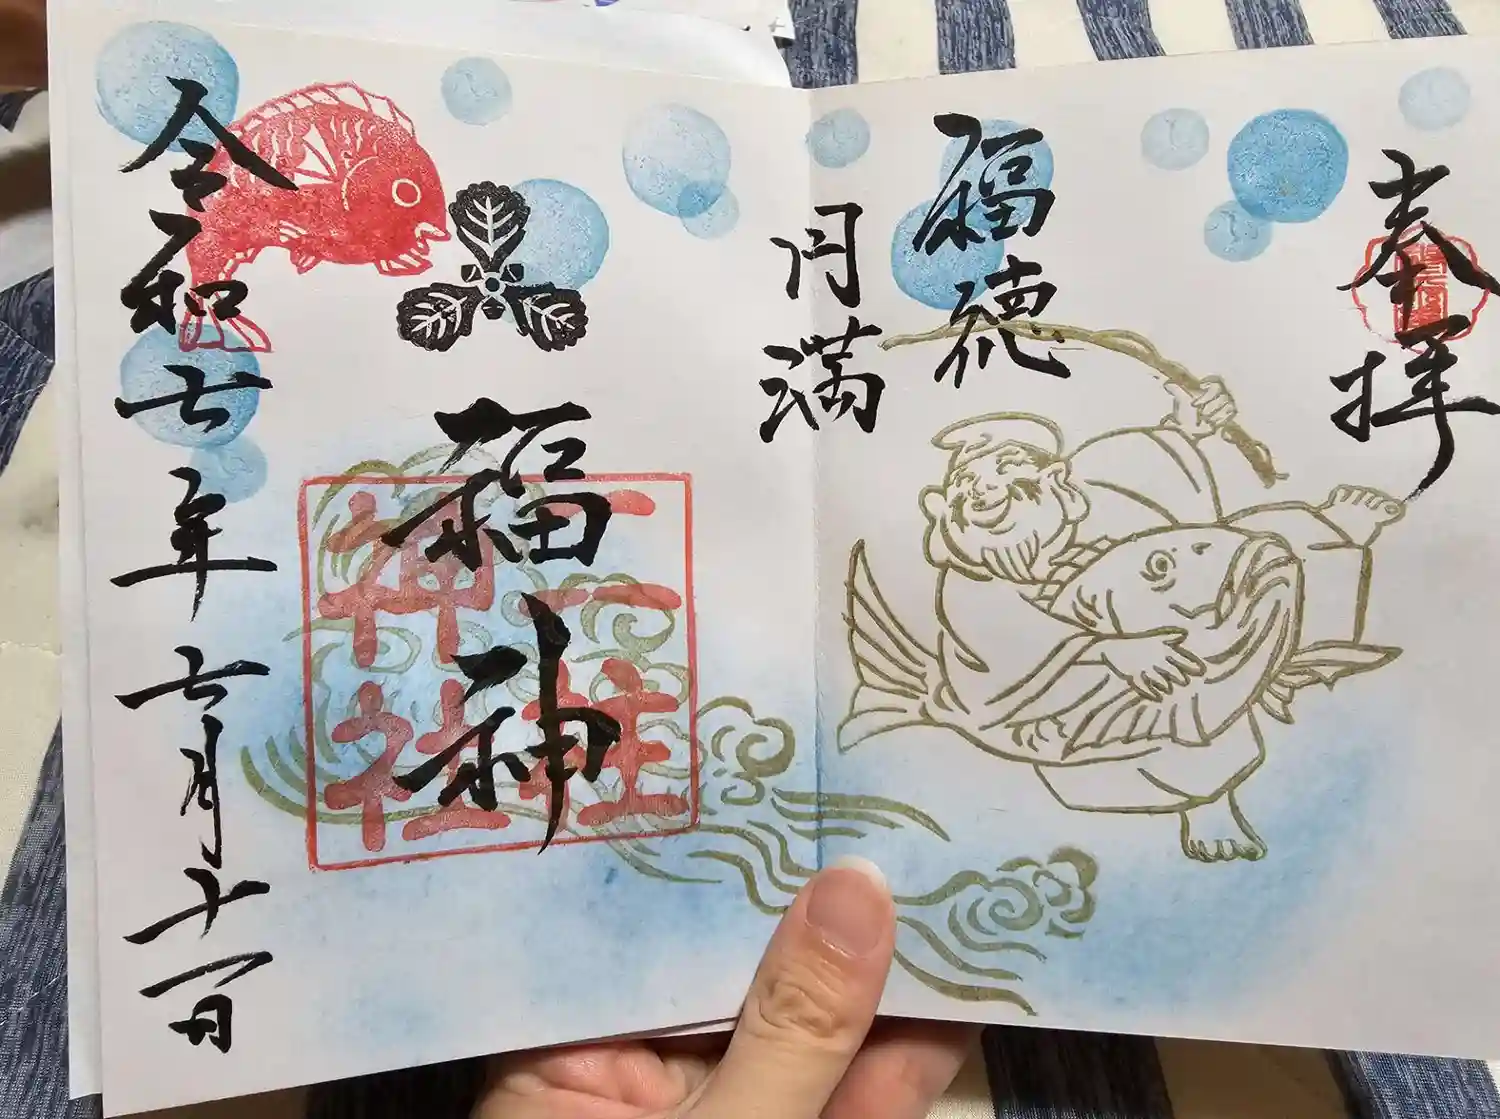 奉拝
福徳
円満
福神
二柱
神社
令和七年七月十一日